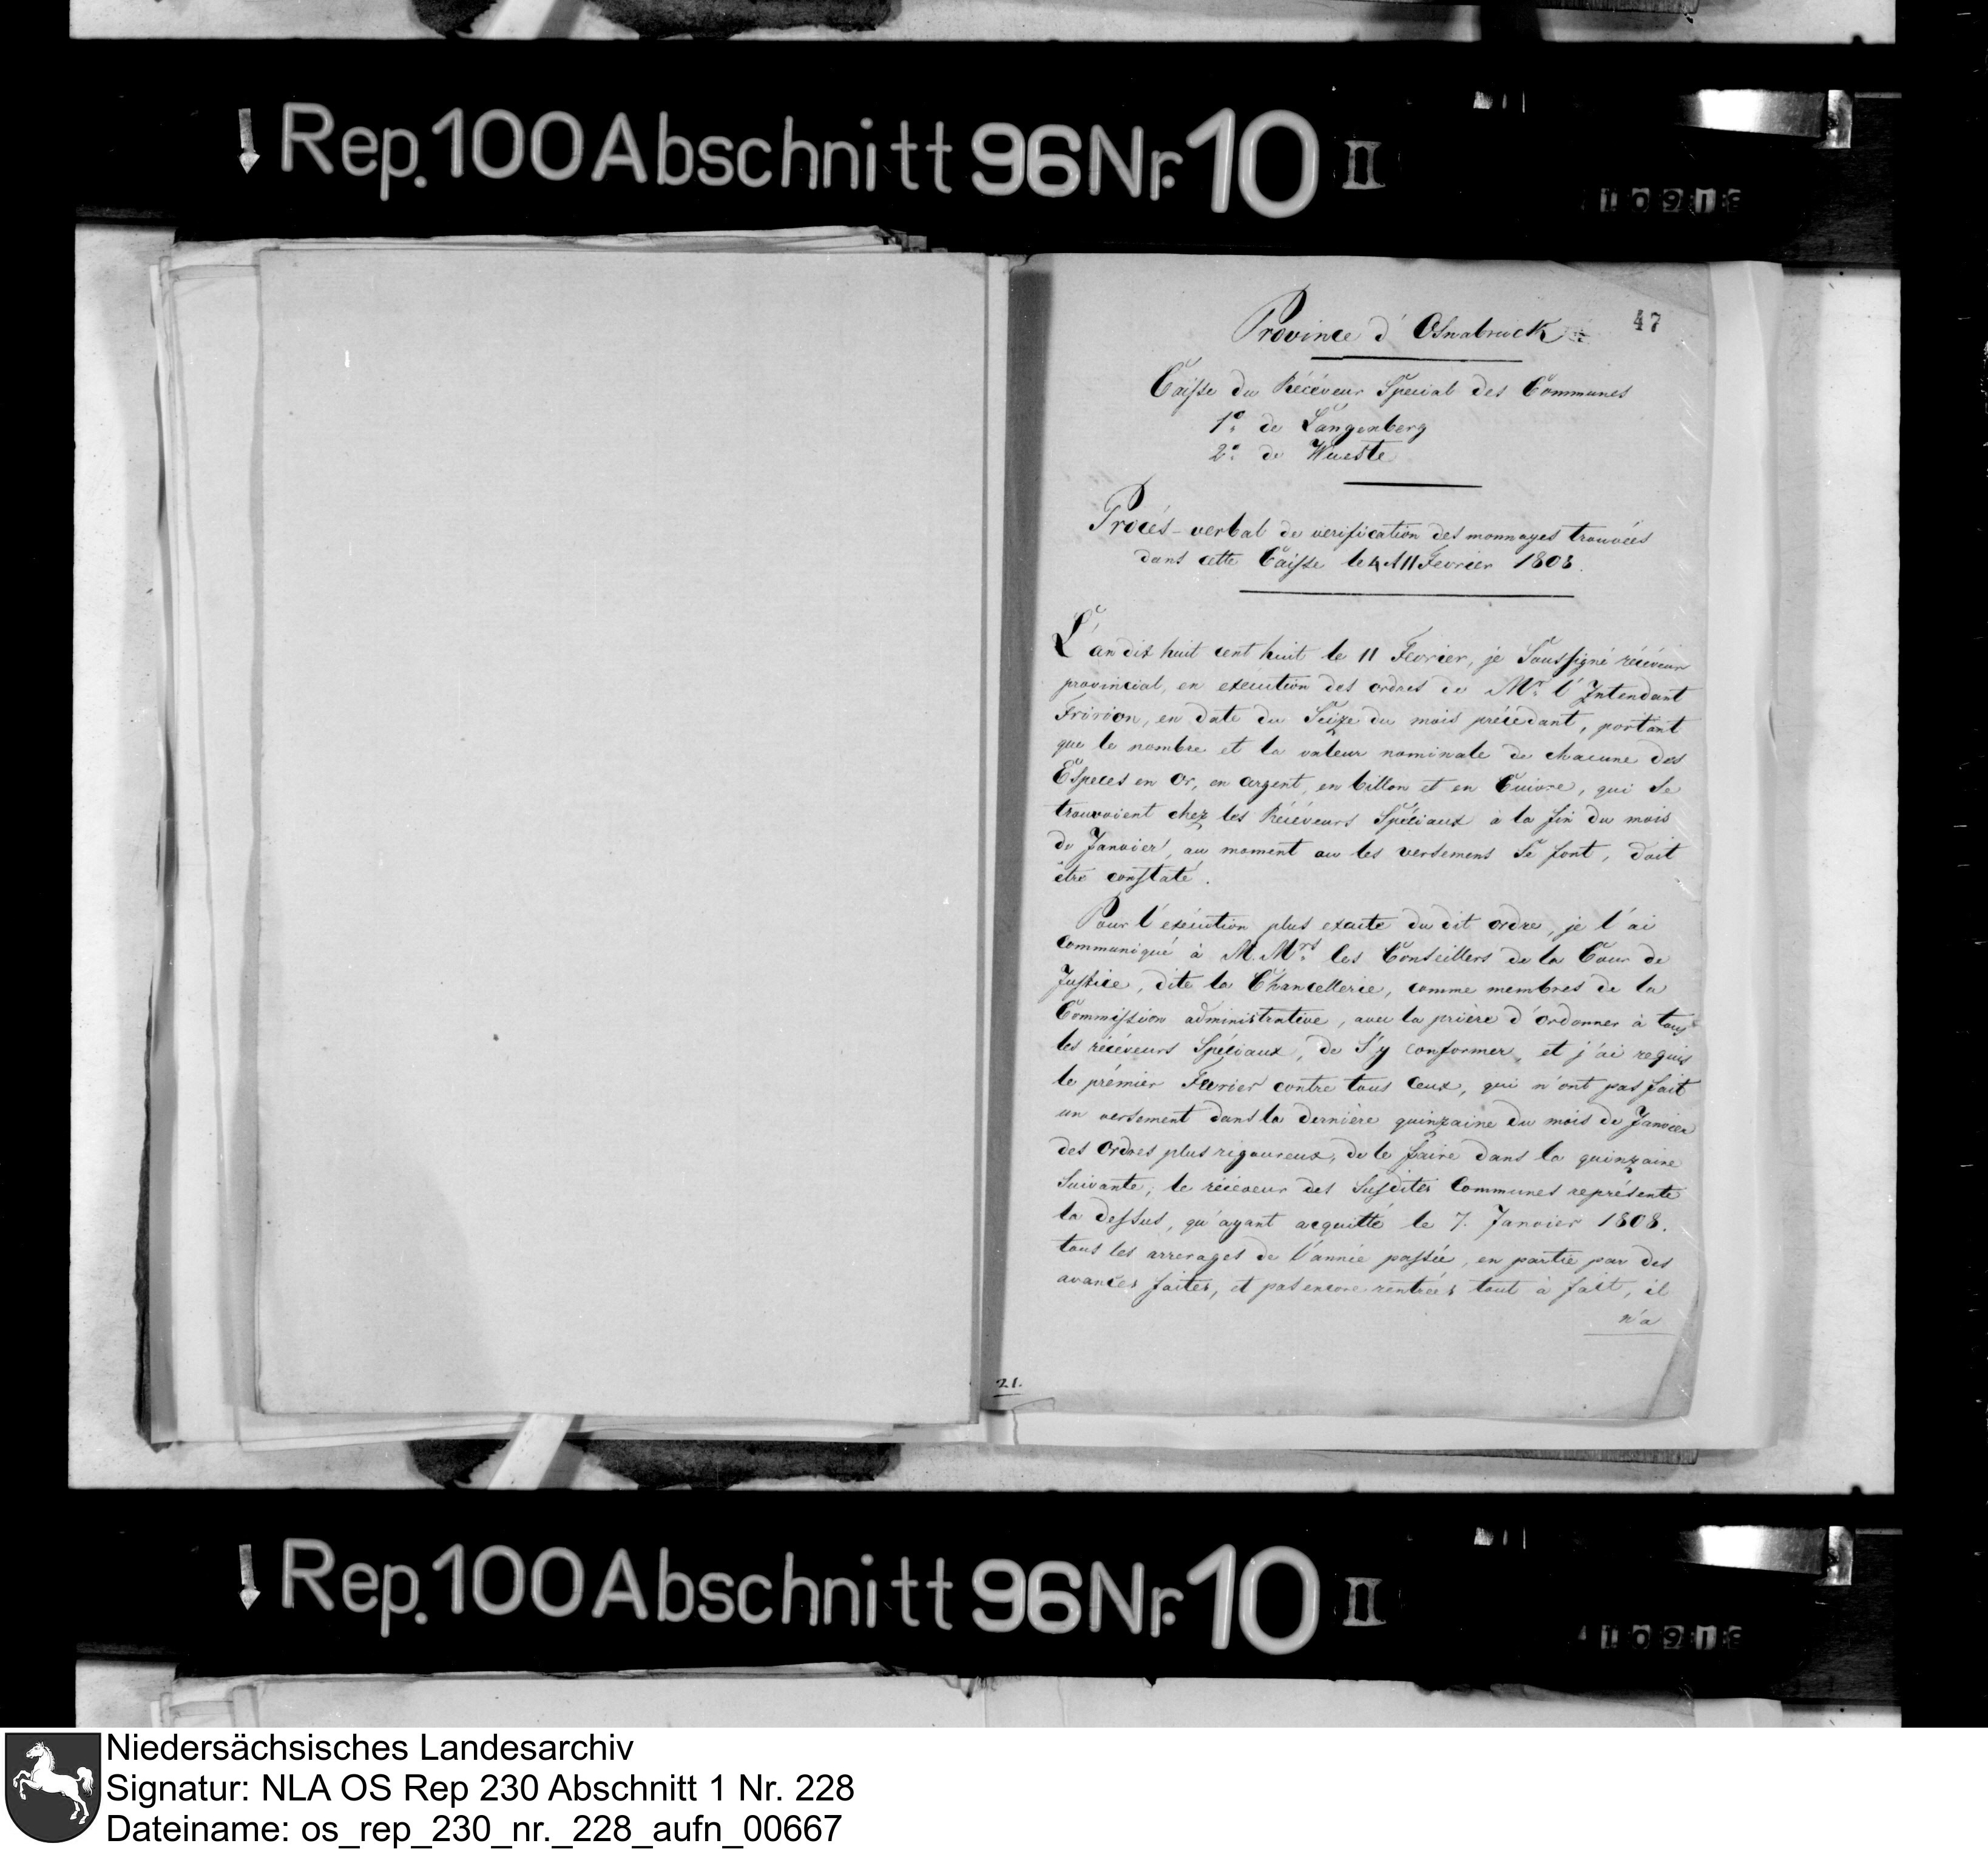 Rep. 100 Abschnitt 96 Nr. 10 II
1091
47
Province d'Osnabruck
Caisse du Récéveur Special des Communes
1º de Langenberg
2º de Wueste
Procés-verbal de verification des monnoyes trouvées
dans cette Caisse le 11 Fevrier 1808.
L'an dix huit cent huit le 11 Fevrier, je Soussigné récéveur
provincial, en execution des ordres de Mr. l'Intendant
Fririon, en date du Seize du mois précedant, portant
que le nombre et la valeur nominale de chacune des
Especes en Or, en argent, en billon et en Cuivre, qui se
trouvoient chez les Récéveurs Spéciaux à la fin du mois
de Janvier, au moment ou les versemens se font, doit
être constaté.
Pour l'exécution plus exacte du dit ordre, je l'ai
communiqué à M.Mrs. les Conseillers de la Cour de
Justice, dite la Chancellerie, comme membres de la
Commission administrative, avec la prière d'ordonner à tous
les récéveurs Spéciaux, de s'y conformer, et j'ai requis
le prémier Fevrier contre tous Ceux, qui n'ont pas fait
un versement dans la dernière quinzaine du mois de Janvier
des Ordres plus rigoureux, de le faire dans la quinzaine
suivante; le récéveur des Susdites Communes représente
la dessus, qu'ayant acquitté le 7. Janvier 1808.
tous les arrerages de l'année passée, en partie par des
avances faites, et pas encore rentrées tout à fait, il
n'a
21.
Rep. 100 Abschnitt 96 Nr. 10 II
1091
Niedersächsisches Landesarchiv
Signatur: NLA OS Rep 230 Abschnitt 1 Nr. 228
Dateiname: os_rep_230_nr._228_aufn_00667